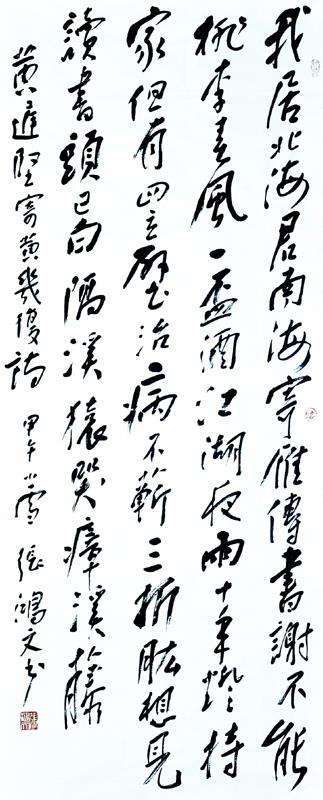 我居北海君南海寄雁傳書謝不能
桃李春風一盃酒江湖夜雨十年燈持
家但有四立壁治病不蘄三折肱想見
讀書頭已白隔溪猿哭瘴溪藤
黄庭堅寄黄幾復詩 甲午小雪張鴻文书